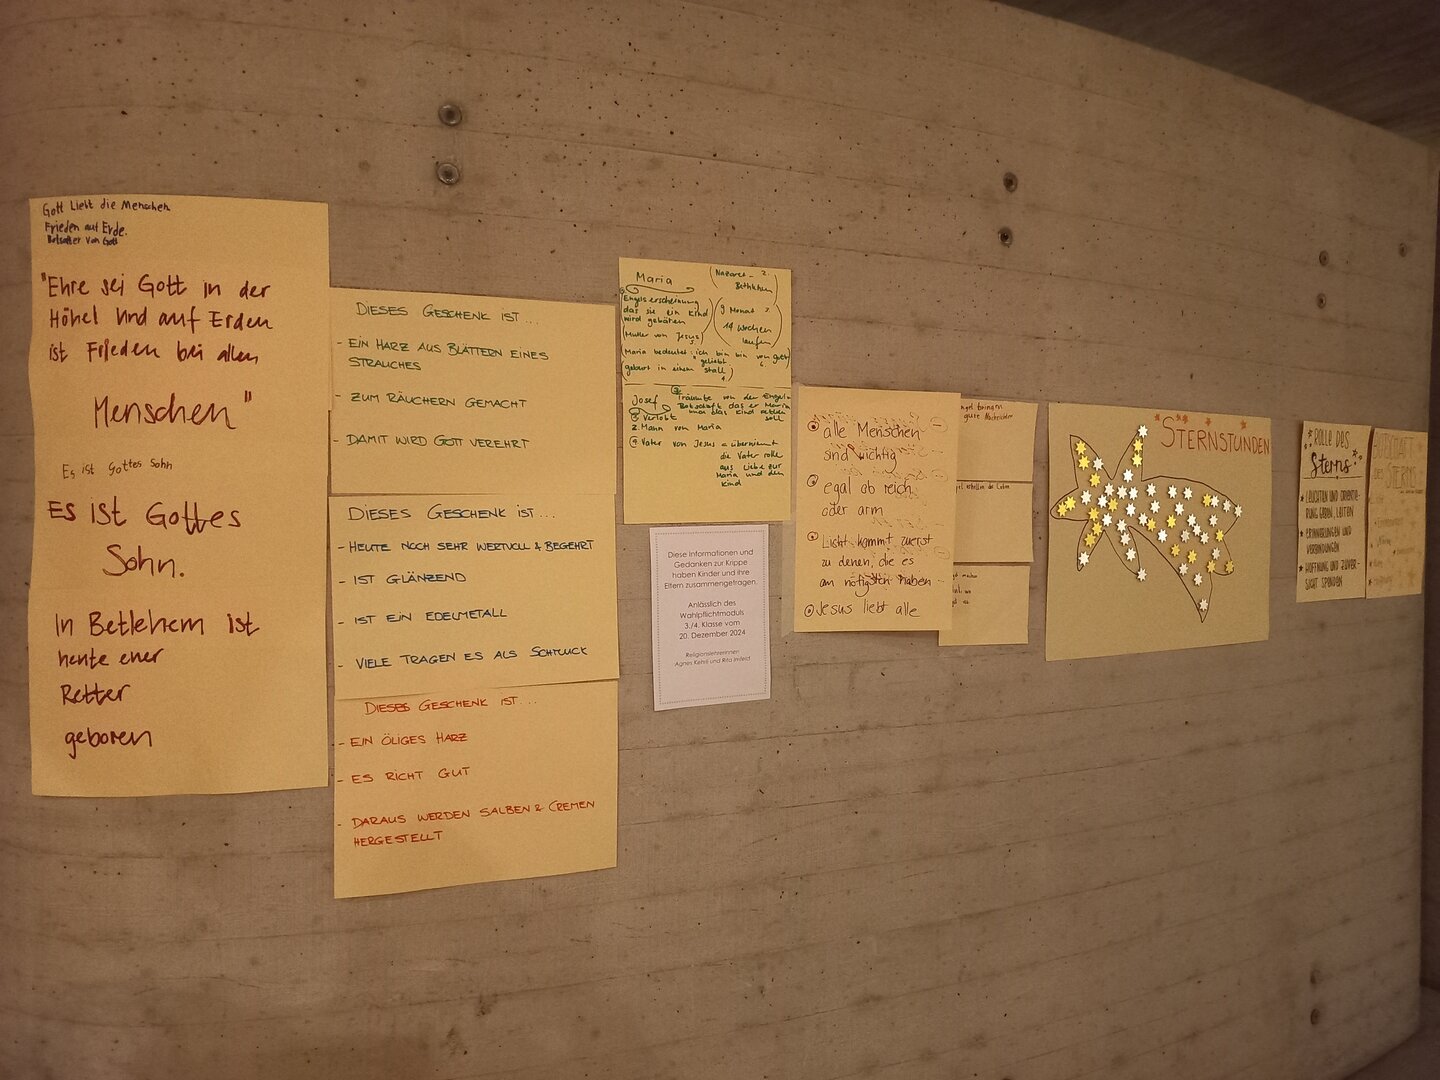 Gott Liebt die Menschen
Frieden auf Erde.
Botsafter Von Gott
"Ehre sei Gott in der
Höhe! Und auf Erden
ist Frieden bei allen
Menschen"
Es ist Gottes Sohn
Es ist Gottes
Sohn.
In Betlehem ist
heute einer
Retter
geboren
DIESES GESCHENK IST...
- EIN HARZ AUS BLÄTTERN EINES
STRAUCHES
- ZUM RÄUCHERN GEMACHT
- DAMIT WIRD GOTT VEREHRT
DIESES GESCHENK IST...
- HEUTE NOCH SEHR WERTVOLL & BEGEHRT
- IST GLÄNZEND
- IST EIN EDELMETALL
- VIELE TRAGEN ES ALS SCHMUCK
DIESES GESCHENK IST...
- EIN ÖLIGES HARZ
- ES RICHT GUT
- DARAUS WERDEN SALBEN & CREMEN
HERGESTELLT
Maria
(Nazaret - 2.
Bethlehem)
Engelserscheinung
das sie ein Kind
wird gebären
(Mutter von Jesus)
9 Monat
14 Wochen
laufen
(Maria bedeutet: ich bin von Gott
geliebt
(geburt in einem Stall)
Josef
Träumte von der Engeln
Botschaft das er Maria
und das Kind retten
soll
Verlobt
2. Mann von Maria
Vater von Jesus = übernimmt
die Vater rolle
aus Liebe zur
Maria und dem
Kind
Diese Informationen und
Gedanken zur Krippe
haben Kinder und ihre
Eltern zusammengetragen.
Anlässlich des
Wahlpflichtmoduls
3./4. Klasse vom
20. Dezember 2024
Religionslehrerinnen
Agnes Kehrli und Rita Imfeld
alle Menschen
sind wichtig
egal ob reich
oder arm
Licht kommt zuerst
zu denen, die es
am nötigsten haben
Jesus liebt alle
bringen
gute Nachrichten
STERNSTUNDEN
ROLLE DES
Sterns:
LEUCHTEN UND ORIENTIE-
RUNG GEBEN, LEITEN
ERINNERUNGEN UND
VERBINDUNGEN
HOFFNUNG UND ZUVER-
SICHT SPENDEN
BOTSCHAFT
DES STERNS